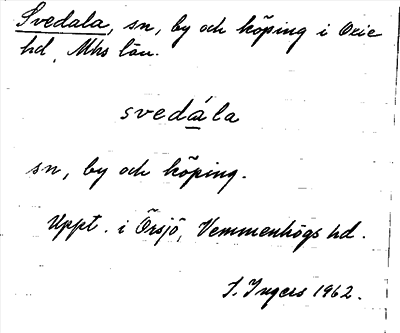 Svedala, sn, by och köping i Oxie
hd, Mhs län.
svedála
sn, by och köping.
Uppt. i Örsjö, Vemmenhögs hd.
I. Ingers 1962.